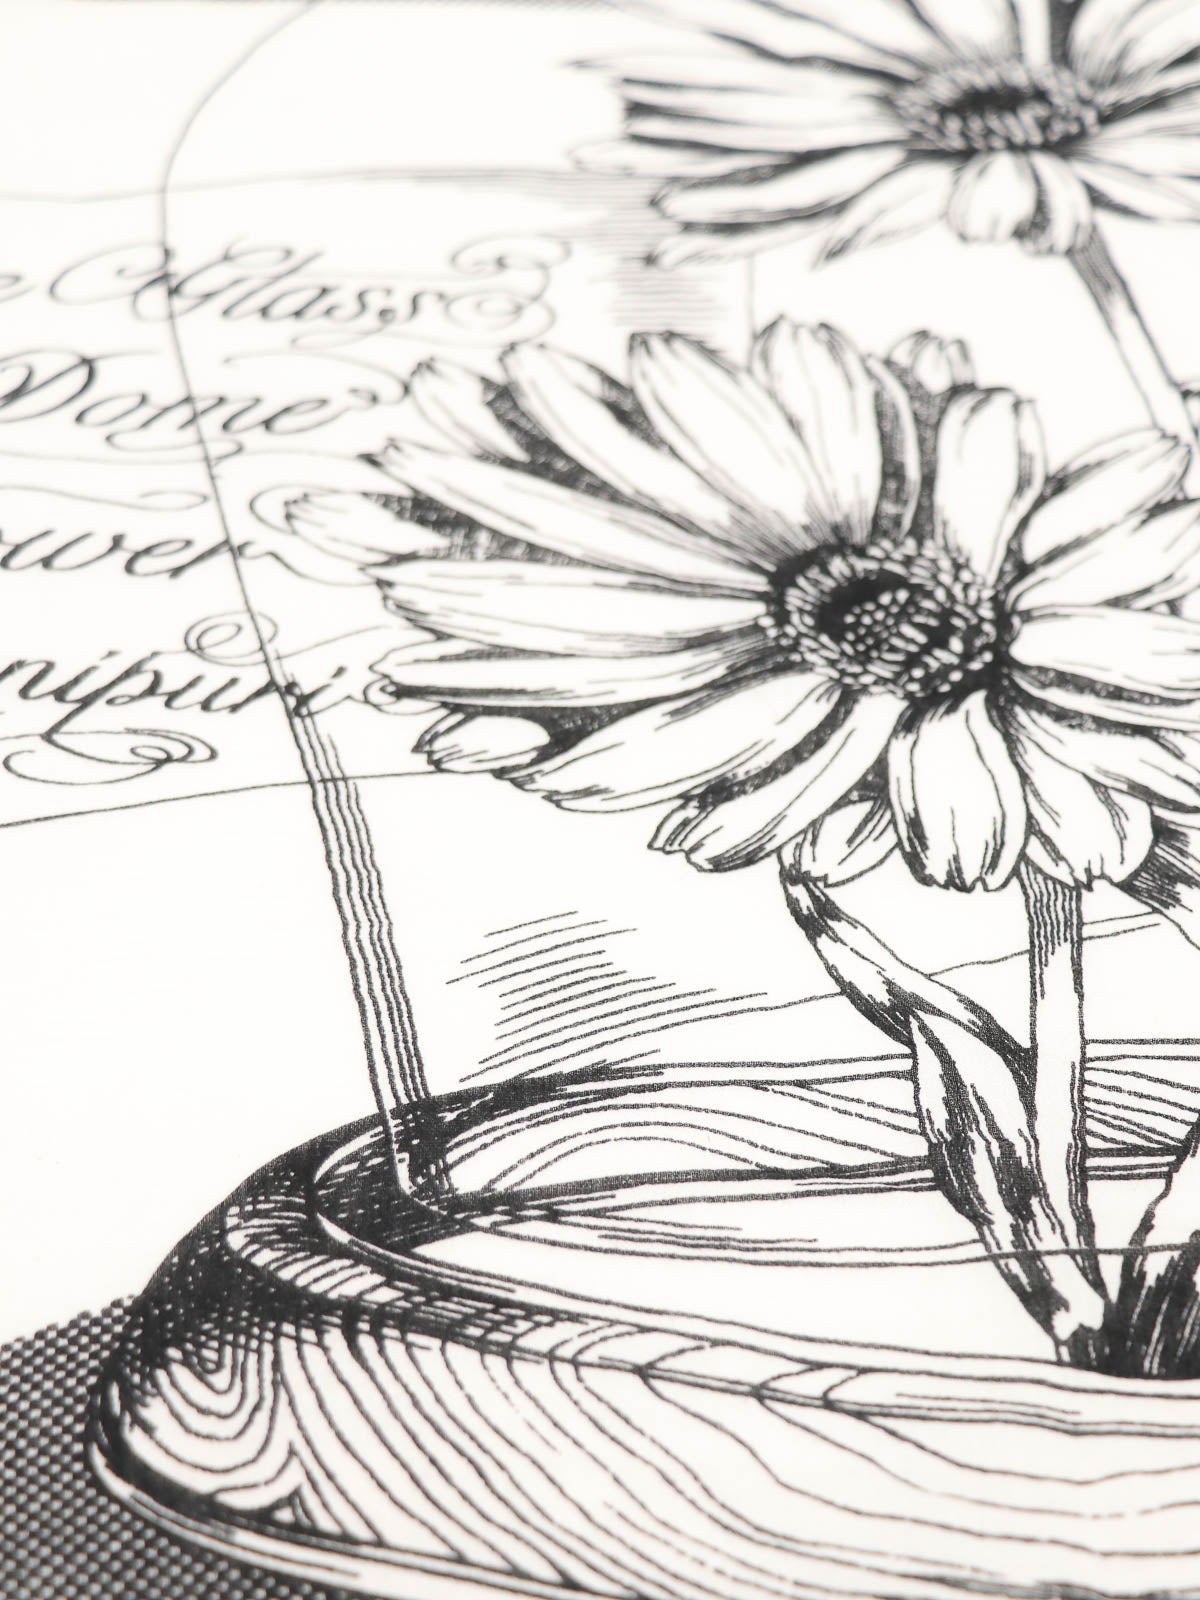 e Glass
Dome
ower
nipuri